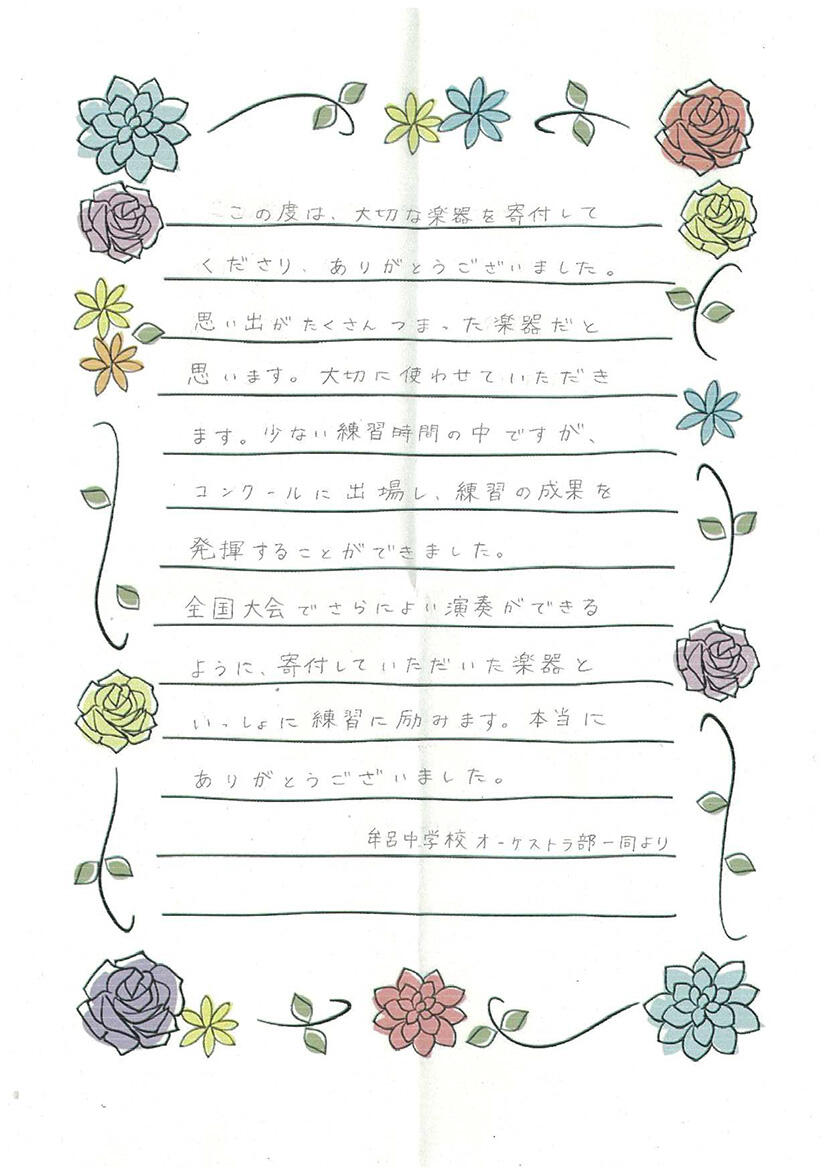 この度は、大切な楽器を寄付して
くださり、ありがとうございました。
思い出がたくさんつまった楽器だと
思います。大切に使わせていただき
ます。少ない練習時間の中ですが、
コンクールに出場し、練習の成果を
発揮することができました。
全国大会でさらによい演奏ができる
ように、寄付していただいた楽器と
いっしょに練習に励みます。本当に
ありがとうございました。
牟呂中学校オーケストラ部一同より